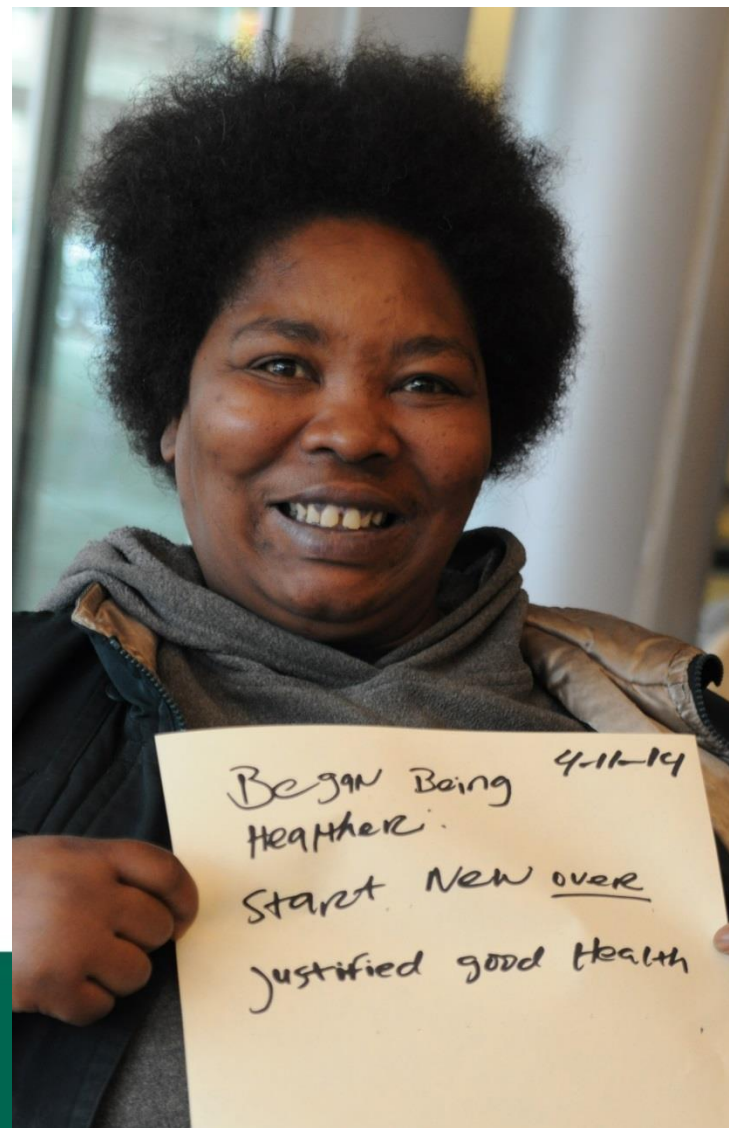 Began Being 4-11-14
Healther.
Start New over
justified good Health